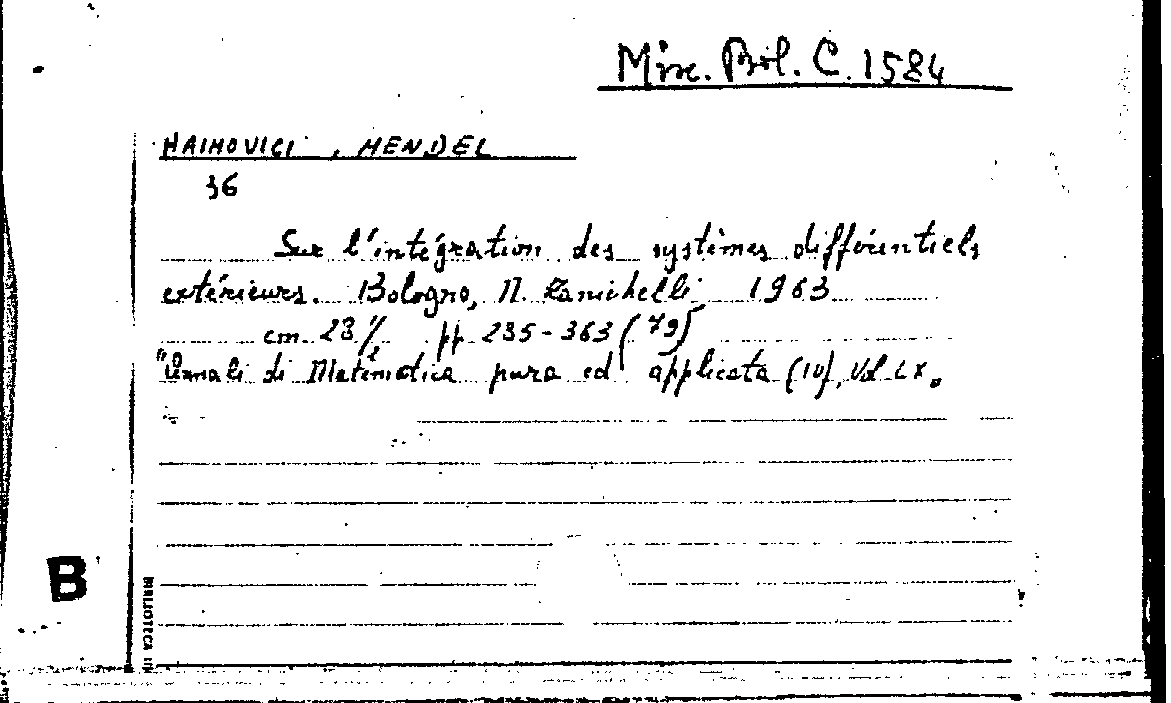 Misc. Bol. C. 1584
HAIMOVICI, MENDEL
36
Sur l'intégration des systèmes différentiels
extérieurs. Bologna, N. Zanichelli 1963
cm 28½ pp 285-363 (79)
"Annali di Matematica pura ed applicata (10), Vol LX.
B
BIBLIOTECA